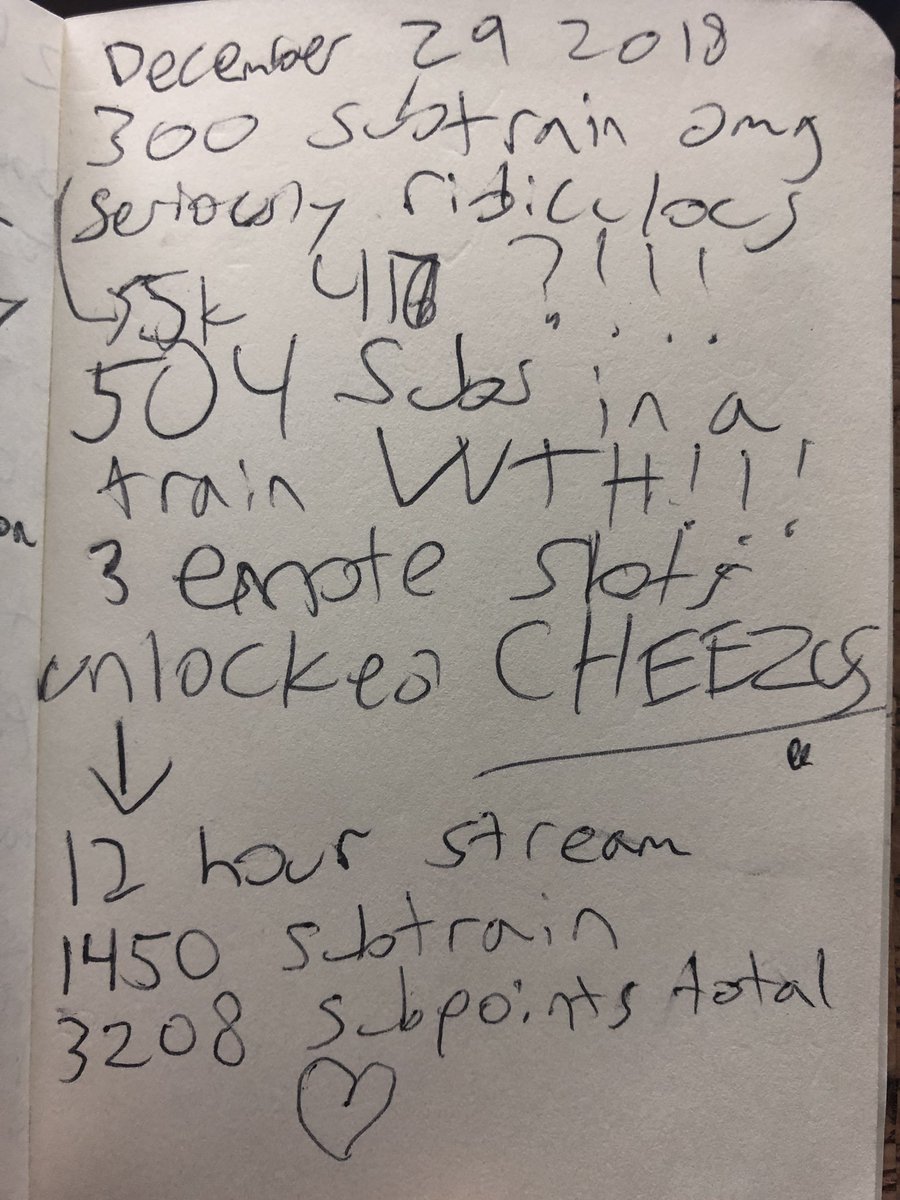 December 29 2018
300 subtrain omg
seriously ridiculous
55k ?!!!
504 subs in a
train WTH!!!
3 emote slots
unlocked CHEEZUS
12 hour stream
1450 subtrain
3208 subpoints total